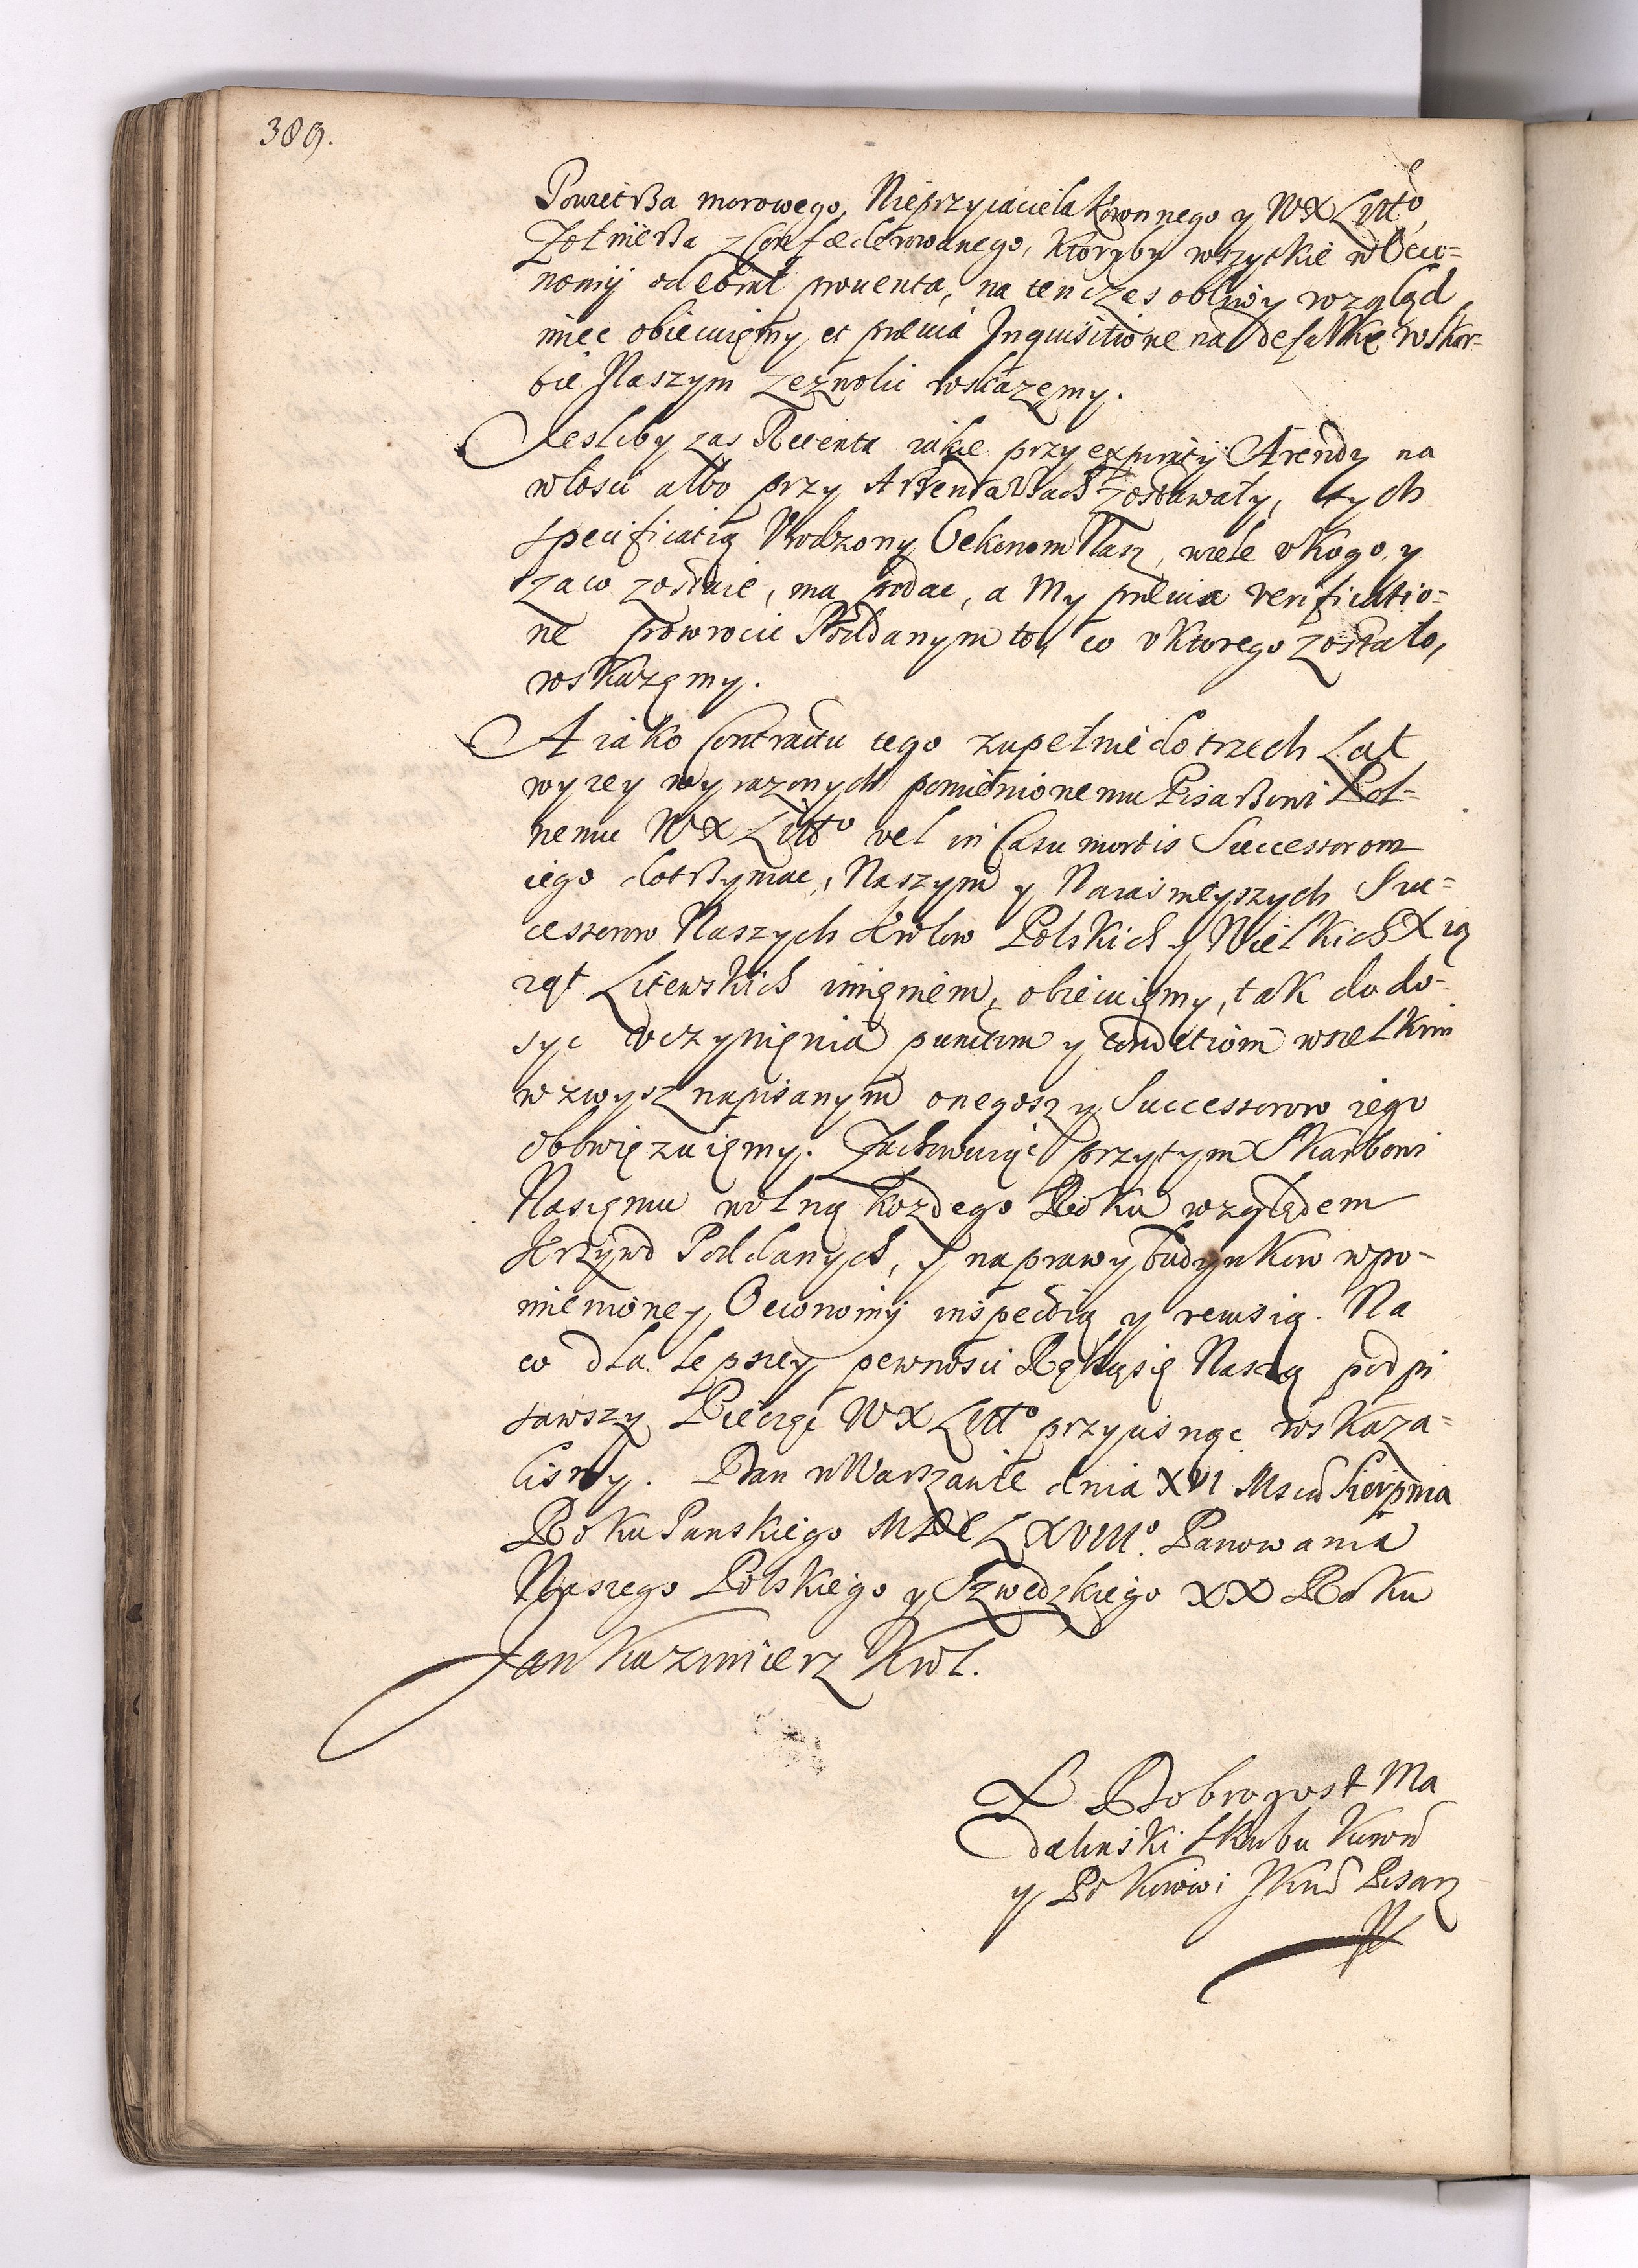 389.
Powietrza morowego, Nieprzyiaciela Koronnego y WXLittº,
Zołnierza zConfoederowanego, ktoryby wszytkie w Oeco=
nomÿ odebrał prouenta, na ten czas obliwy wzgląd
miec obiecuięmy, et præuia Inquisitione na defalkę w Skar=
bie Naszym zezwolic wskażęmy.
Jesliby zas Retenta iakie przy expiratÿ Arendy na
włosci albo przy Arendarzach zostawały, tych
specificatią Vrodzony Oekonom Nasz, wiele v kogo, y
za co zostaie, ma podac, a My præuia verificatio=
ne powrocic Poddanym to, co v ktorego zostało,
wskażęmy.
A iako Contractu tego zupełnie do trzech Lat
wyzey wyrazonych pomienionemu Pisarzowi Pol=
nemu WXLittº vel in Casu mortis Successorom
iego dotrzymac, Naszym y Naiasnieyszych Suc=
cessorow Naszych Krolow Polskich y Wielkich Xią
ząt Litewskich imięniem, obiecuięmy, tak do do=
syc vczynięnia punctom y conditiom wszelkim
wzwysz napisanym onegosz y Successorow iego
obowięzuięmy. Zachowuięc przytym Skarbowi
Naszęmu wolną kozdego Roku względem
Krzywd Poddanych, y naprawy budynkow wpo=
mienioney OeconomÿÏ inspectią y rewisią. Na
co dla lepszey pewnosci Ręką się Naszą podpi
sawszy Pieczęc WXLittº przycisnąc wskaza=
lismy. Dan w Warszawie dnia XVI Mscă Sierpnia
Roku Panskiego MDCLXVIIIº. Panowania
Naszego Polskiego y Szwedzkiego XX Roku
Jan Kazimierz Krol.
Dobrogost Ma
dalinski Skarbu
y Pisarz